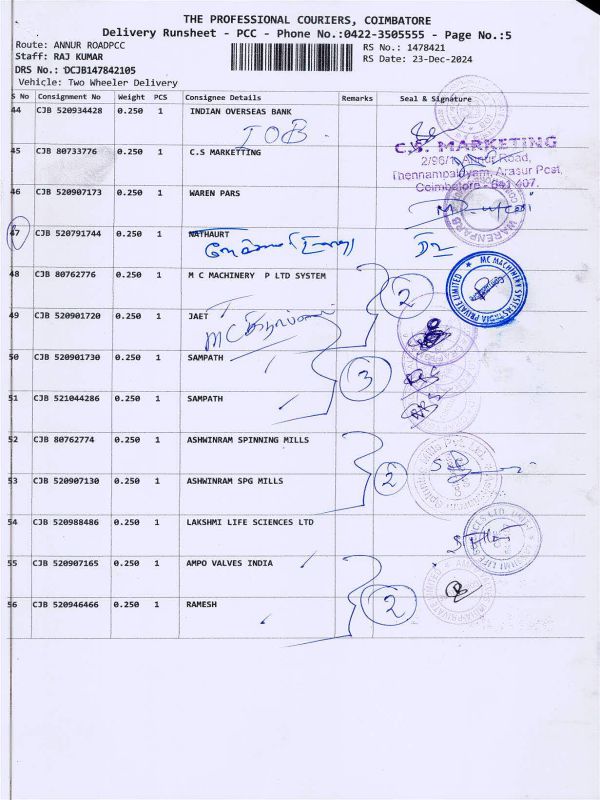 THE PROFESSIONAL COURIERS, COIMBATORE
Delivery Runsheet - PCC - Phone No.:0422-3505555 - Page No.:5
Route: ANNUR ROADPCC
RS No.: 1478421
Staff: RAJ KUMAR
RS Date: 23-Dec-2024
DRS No.: DCJB147842105
Vehicle: Two Wheeler Delivery
S No Consignment No Weight PCS Consignee Details Remarks Seal & Signature
44 CJB 520934428 0.250 1 INDIAN OVERSEAS BANK
IOB
45 CJB 80733776 0.250 1 C.S MARKETTING
C.S. MARKETING
2/96/1, Annur Road,
Thennampalayam, Arasur Post,
Coimbatore - 641 407.
46 CJB 520907173 0.250 1 WAREN PARS
47 CJB 520791744 0.250 1 NATHAURT
48 CJB 80762776 0.250 1 M C MACHINERY P LTD SYSTEM
2
MC MACHINERY SYSTEMS INDIA PRIVATE LIMITED
49 CJB 520901720 0.250 1 JAET
MC
50 CJB 520901730 0.250 1 SAMPATH
3
51 CJB 521044286 0.250 1 SAMPATH
52 CJB 80762774 0.250 1 ASHWINRAM SPINNING MILLS
2
53 CJB 520907130 0.250 1 ASHWINRAM SPG MILLS
54 CJB 520988486 0.250 1 LAKSHMI LIFE SCIENCES LTD
55 CJB 520907165 0.250 1 AMPO VALVES INDIA
2
56 CJB 520946466 0.250 1 RAMESH